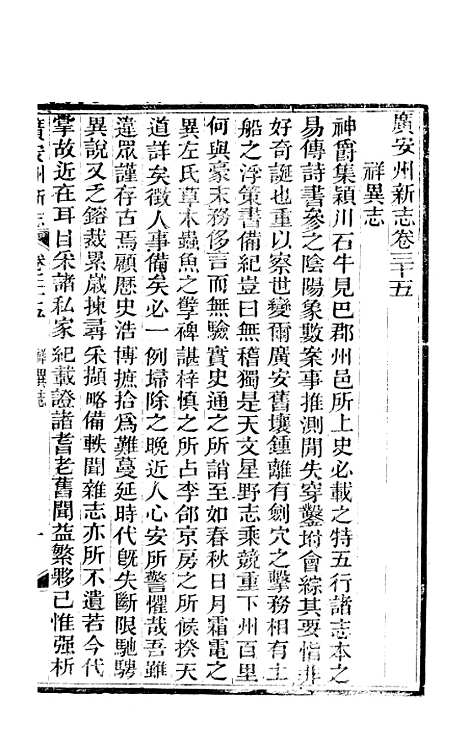 廣安州新志卷三十五
祥異志
神爵集潁川石牛見巴郡州邑所上史必載之特五行諸志本之
易傳詩書參之陰陽象數案事推測閒失穿鑿坿會綜其要恉非
好奇誕也重以察世變爾廣安舊壤鍾離有劍穴之擊務相有土
船之浮策書備紀豈曰無稽獨是天文星野志乘競重下州百里
何與豪末務侈言而無驗實史通之所誚至如春秋日月霜電之
異左氏草木蟲魚之孼裨諶梓慎之所占李郃京房之所候揆天
道詳矣徵人事備矣必一例埽除之晚近人心安所警懼哉吾雖
違眾謹存古焉顧歷史浩博摭拾爲難蔓延時代旣失斷限馳騁
異說又乏鎔裁累歲揀尋采擷略備軼聞雜志亦所不遺若今代
掌故近在耳目采諸私家紀載證諸耆老舊聞益繁夥已惟强析
廣安州新志 卷三十五 祥異志 一